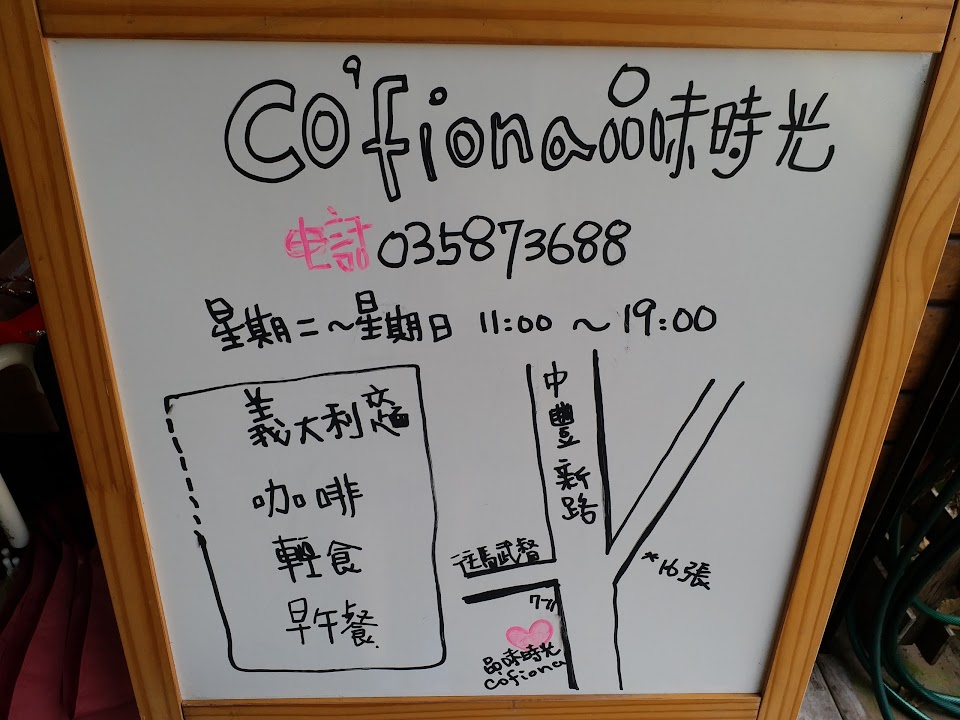 Co'fiona品味時光
電話035873688
星期二～星期日 11:00 ～19:00
義大利麵
咖啡
輕食
早午餐
中豐新路
往馬武督
*16張
77
品味時光
Cofiona